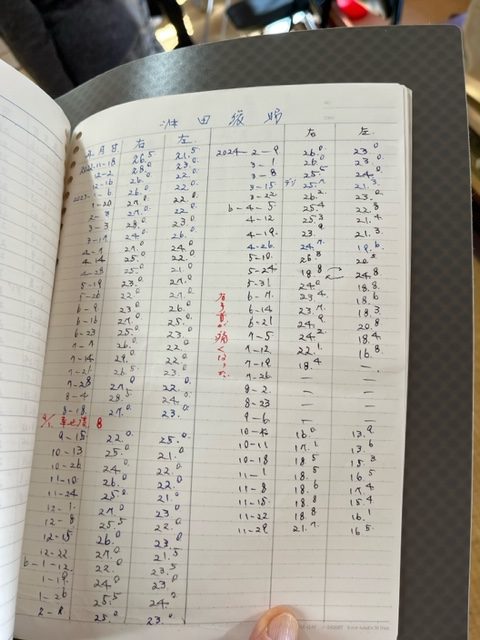 池田
年月日 右 左
2022.11-18 26.5 21.5
12-2 28.0 23.0
12-16 26.0 22.0
1-20 27.0 22.0
2-3 27.0 22.0
3-3 28.0 23.0
3-17 24.0 26.0
4-7 27.0 24.0
4-14 25.0 22.0
4-28 25.0 21.0
5-19 23.0 27.0
5-26 22.0 27.0
6-9 23.0 26.0
6-16 27.0 25.0
6-23 25.0 23.0
7-7 26.0 22.0
7-14 29.0 22.0
7-28 27.0 22.0
8-4 28.5 24.0
8-18 27.0 23.0
9-15 22.0 25.0
10-13 25.0 21.0
10-26 24.0 22.0
11-10 26.0 22.0
11-24 25.0 21.0
12-1 27.0 23.0
12-8 25.5 22.0
12-15 26.0 23.0
12-22 27.0 21.5
1-12 22.0 23.5
1-19 24.0 23.0
1-26 25.5 24.0
2-2 25.0 23.0
右 左
2024-2-9 26.0 23.0
3-1 26.0 23.0
3-8 25.5 24.0
3-15 25.7 21.3
3-22 26.2 23.0
4-5 25.4 22.8
4-12 25.3 21.4
4-19 23.9 21.3
4-26 24.7 19.6
5-10 26.8
5-24 18.8 24.8
5-31 24.0 18.8
6-7 23.4 18.6
6-14 23.7 18.3
6-21 24.9 20.8
7-5 24.2 18.4
7-12 22.1 16.8
7-19 18.4 —
7-26 — —
8-2 — —
8-23 — —
9-6 — —
10-4 16.0 13.9
10-11 17.1 13.6
10-18 18.5 15.3
11-1 18.5 16.5
11-8 18.6 17.4
11-15 18.8 15.4
11-22 18.8 16.1
11-29 21.7 16.5